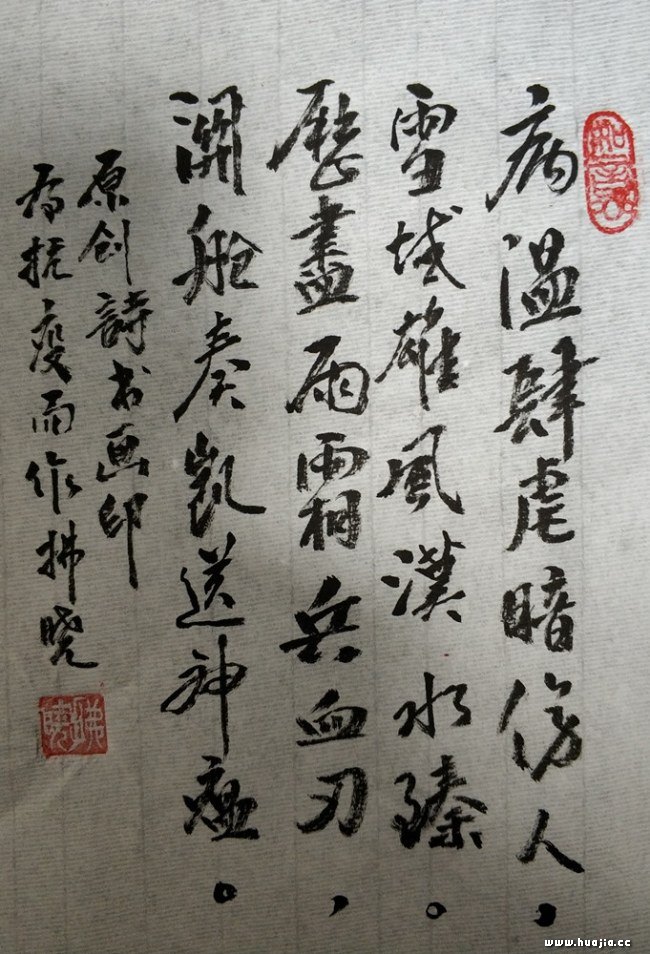 病温肆虐暗傷人，
雪域雄風漢水臻。
歷盡雨霜兵血刃，
開舱奏凱送神瘟。
原创詩书画印
为抗疫而作拂晓
www.huajia.cc